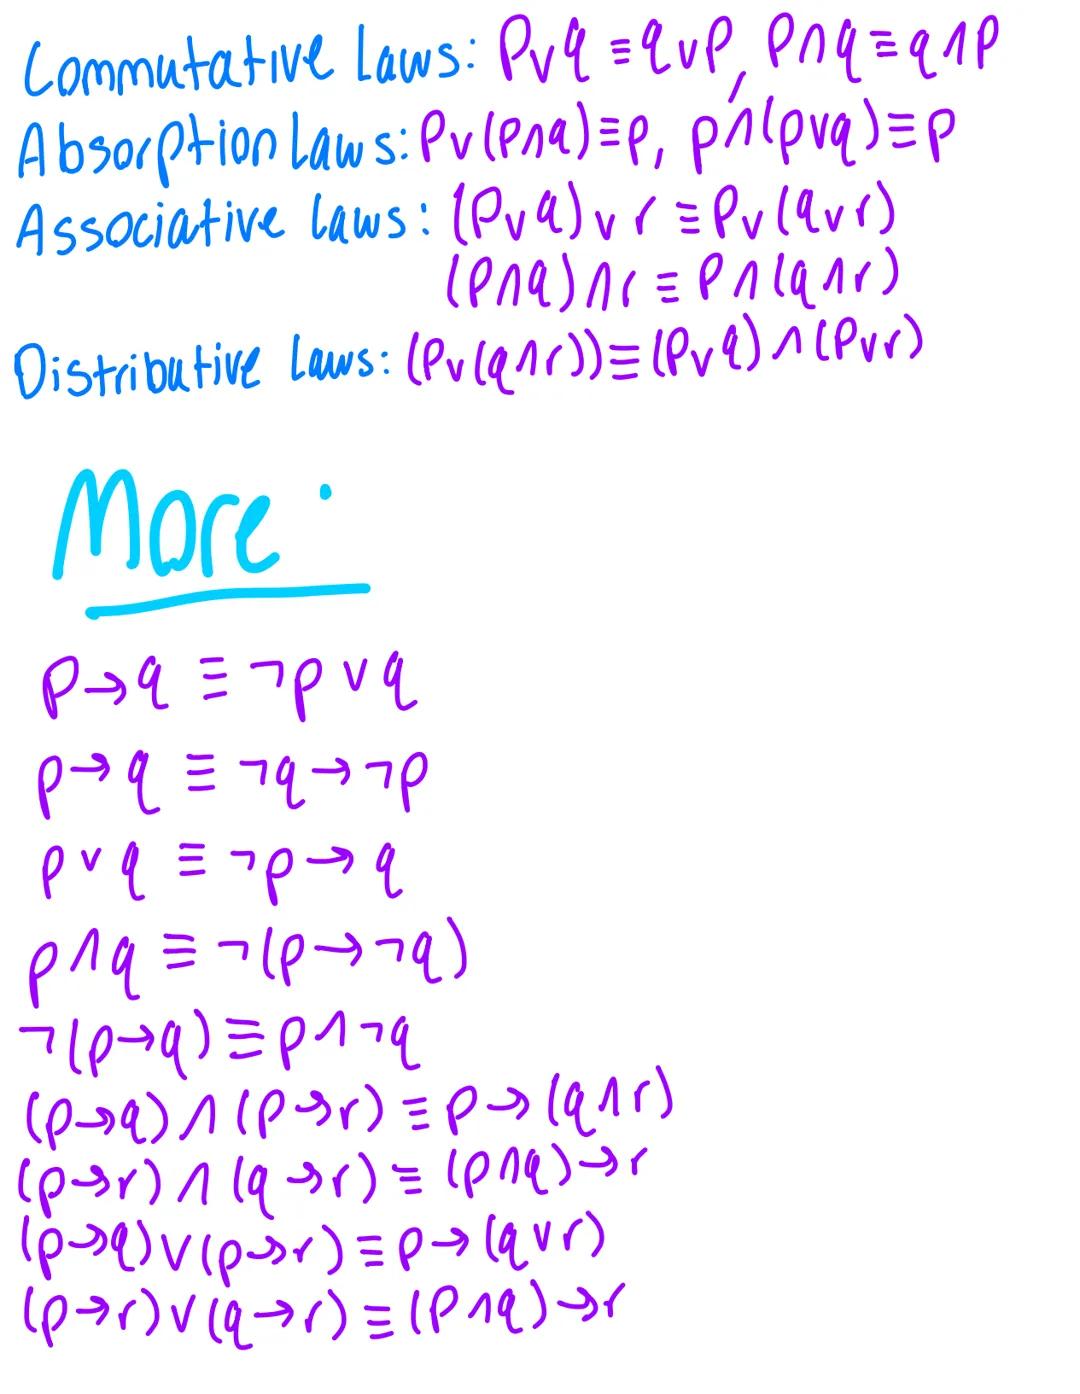 Commutative Laws: p∨q ≡ q∨p, p∧q ≡ q∧p
Absorption Laws: p∨(p∧q) ≡ p, p∧(p∨q) ≡ p
Associative laws: (p∨q)∨r ≡ p∨(q∨r)
(p∧q)∧r ≡ p∧(q∧r)
Distributive Laws: (p∨(q∧r)) ≡ (p∨q)∧(p∨r)
More:
p→q ≡ ¬p∨q
p→q ≡ ¬q→¬p
p∨q ≡ ¬p→q
p∧q ≡ ¬(p→¬q)
¬(p→q) ≡ p∧¬q
(p→q)∧(p→r) ≡ p→(q∧r)
(p→r)∧(q→r) ≡ (p∧q)→r
(p→q)∨(p→r) ≡ p→(q∨r)
(p→r)∨(q→r) ≡ (p∧q)→r